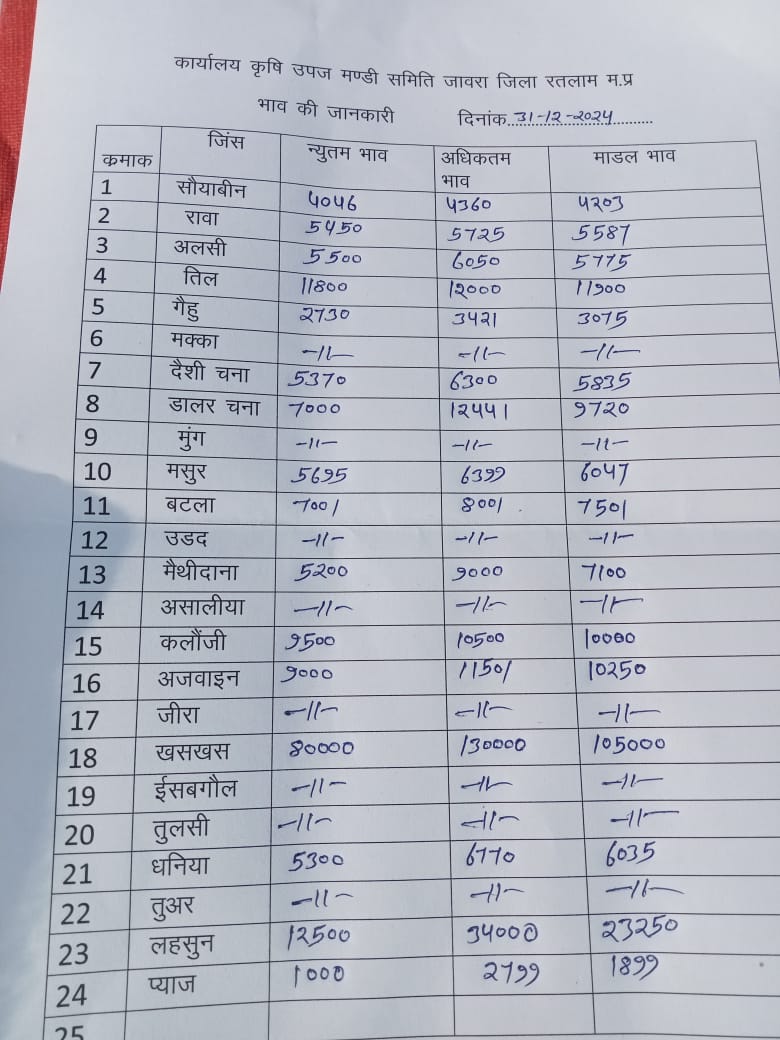 कार्यालय कृषि उपज मण्डी समिति जावरा जिला रतलाम म.प्र
भाव की जानकारी दिनांक..31-12-2024..........
कमाक जिंस न्युतम भाव अधिकतम भाव माडल भाव
1 सौयाबीन 4046 4360 4203
2 रावा 5450 5725 5587
3 अलसी 5500 6050 5775
4 तिल 11800 12000 11900
5 गैहु 2730 3421 3075
6 मक्का -11- -11- -11-
7 दैशी चना 5370 6300 5835
8 डालर चना 7000 12441 9720
9 मुंग -11- -11- -11-
10 मसुर 5695 6399 6047
11 बटला 7001 8001 7501
12 उडद -11- -11- -11-
13 मैथीदाना 5200 9000 7100
14 असालीया -11- -11- -11-
15 कलौंजी 9500 10500 10000
16 अजवाइन 9000 11501 10250
17 जीरा -11- -11- -11-
18 खसखस 80000 130000 105000
19 ईसबगौल -11- -11- -11-
20 तुलसी -11- -11- -11-
21 धनिया 5300 6770 6035
22 तुअर -11- -11- -11-
23 लहसुन 12500 34000 23250
24 प्याज 1000 2799 1899
25